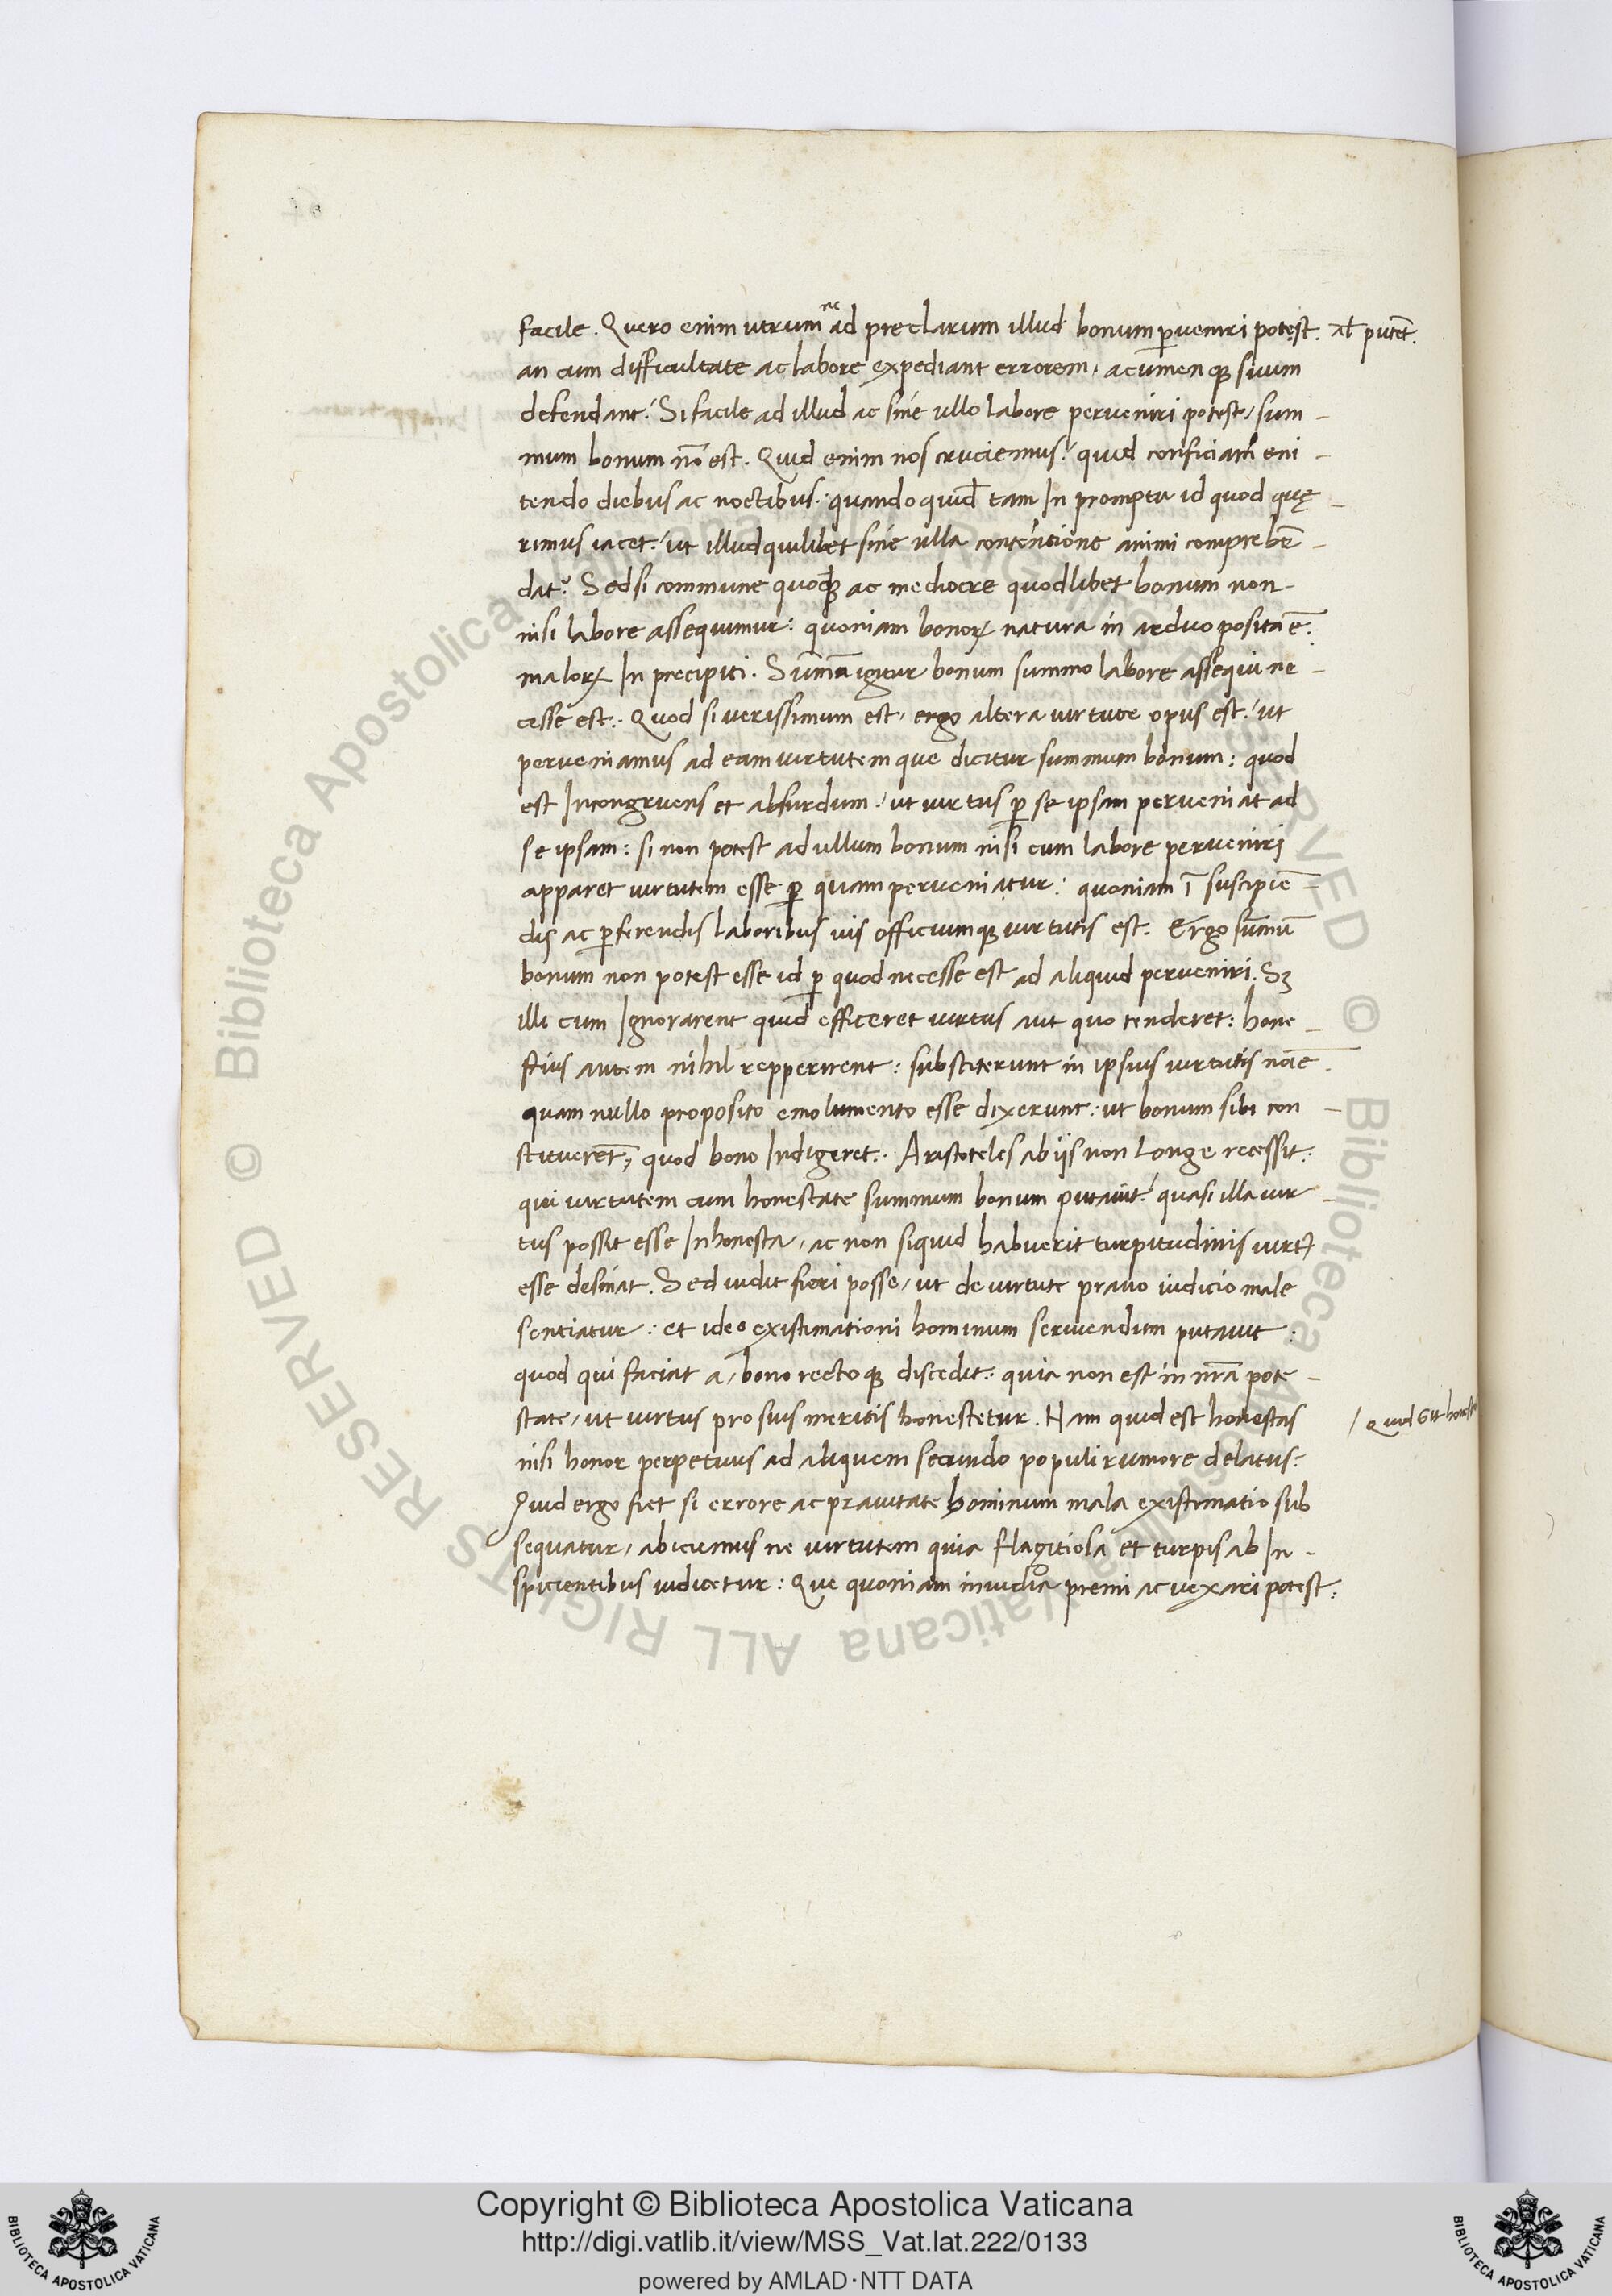 facile. Quero enim utrum ne ad preclarum illud bonum ꝑueniri potest. al putēt.
an cum difficultate ac labore expediant errorem, acumenqꝫ suum
defendant? Si facile ad illud ac sine ullo labore perveniri potest, sum-
mum bonum nō est. Quid enim nos cruciemus? quid conficiam eni-
tendo diebus ac noctibus: quandoquid tam In promptu id quod quę-
rimus iacet? ut illud quilibet sine ulla contentione animi compreħē-
dat? Sed si commune quoqꝫ ac mediocre quodlibet bonum non-
nisi labore assequimur: quoniam bonoꝝ natura in arduo posita ē:
maloꝝ In precipiti. Sūmū igitur bonum summo labore assequi ne-
cesse est. Quod si verissimum est, ergo altera uirtute opus est, ut
perveniamus ad eam uirtutem que dicitur summum bonum: quod
est Incongruens et absurdum, ut uirtus ꝑ se ipsam perveniat ad
se ipsam: si non potest ad ullum bonum nisi cum labore perveniri
apparet uirtutem esse ꝑ quam perveniatur: quoniam ī suscipiē-
dis ac ꝑferendis laboribus uis officiumqꝫ uirtutis est. Ergo sūmū
bonum non potest esse id ꝑ quod necesse est ad aliquid perveniri. Sꝫ
illi cum Ignorarent quid efficeret uirtus aut quo tenderet: hone-
stius autem nihil reppererent: substiterunt in ipsius uirtutis noīe
quam nullo proposito emolumento esse dixerunt: ut bonum sibi con-
stituerēt, quod bono Indigeret. Aristoteles ab iis non longe recessit:
qui uirtutem cum honestate summum bonum putauit: quasi illa uir-
tus possit esse Inhonesta, ac non siquid habuerit turpitudinis uirtꝰ
esse desinat. Sed uidit fieri posse, ut de uirtute prauo iudicio male
sentiatur: et ideo existimationi hominum seruiendum putauit:
quod qui faciat a, bono rectoqꝫ discedit: quia non est in nr̄a pote-
state, ut uirtus pro suis meritis honestetur. Nam quid est honestas
nisi honor perpetuus ad aliquem secundo populi rumore delatus:
Quid ergo fiet si errore ac prauitate hominum mala existimatio sub
sequatur, abiciemus ne uirtutem quia flagitiosa et turpis ab In-
spicientibus iudicetur: Que quoniam inuidia premi ac uexari potest:
/ Quid sit honest
Copyright © Biblioteca Apostolica Vaticana
http://digi.vatlib.it/view/MSS_Vat.lat.222/0133
powered by AMLAD·NTT DATA
BIBLIOTECA APOSTOLICA VATICANA
BIBLIOTECA APOSTOLICA VATICANA
© Biblioteca Apostolica Vaticana ALL RIGHTS RESERVED